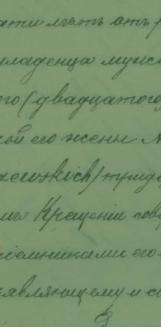 лѣтъ отъ р
младенца мужск
го (двадцатого
ой его жены
ewskich) тридц
Крещеніи сов
ріемниками его
являющему и с